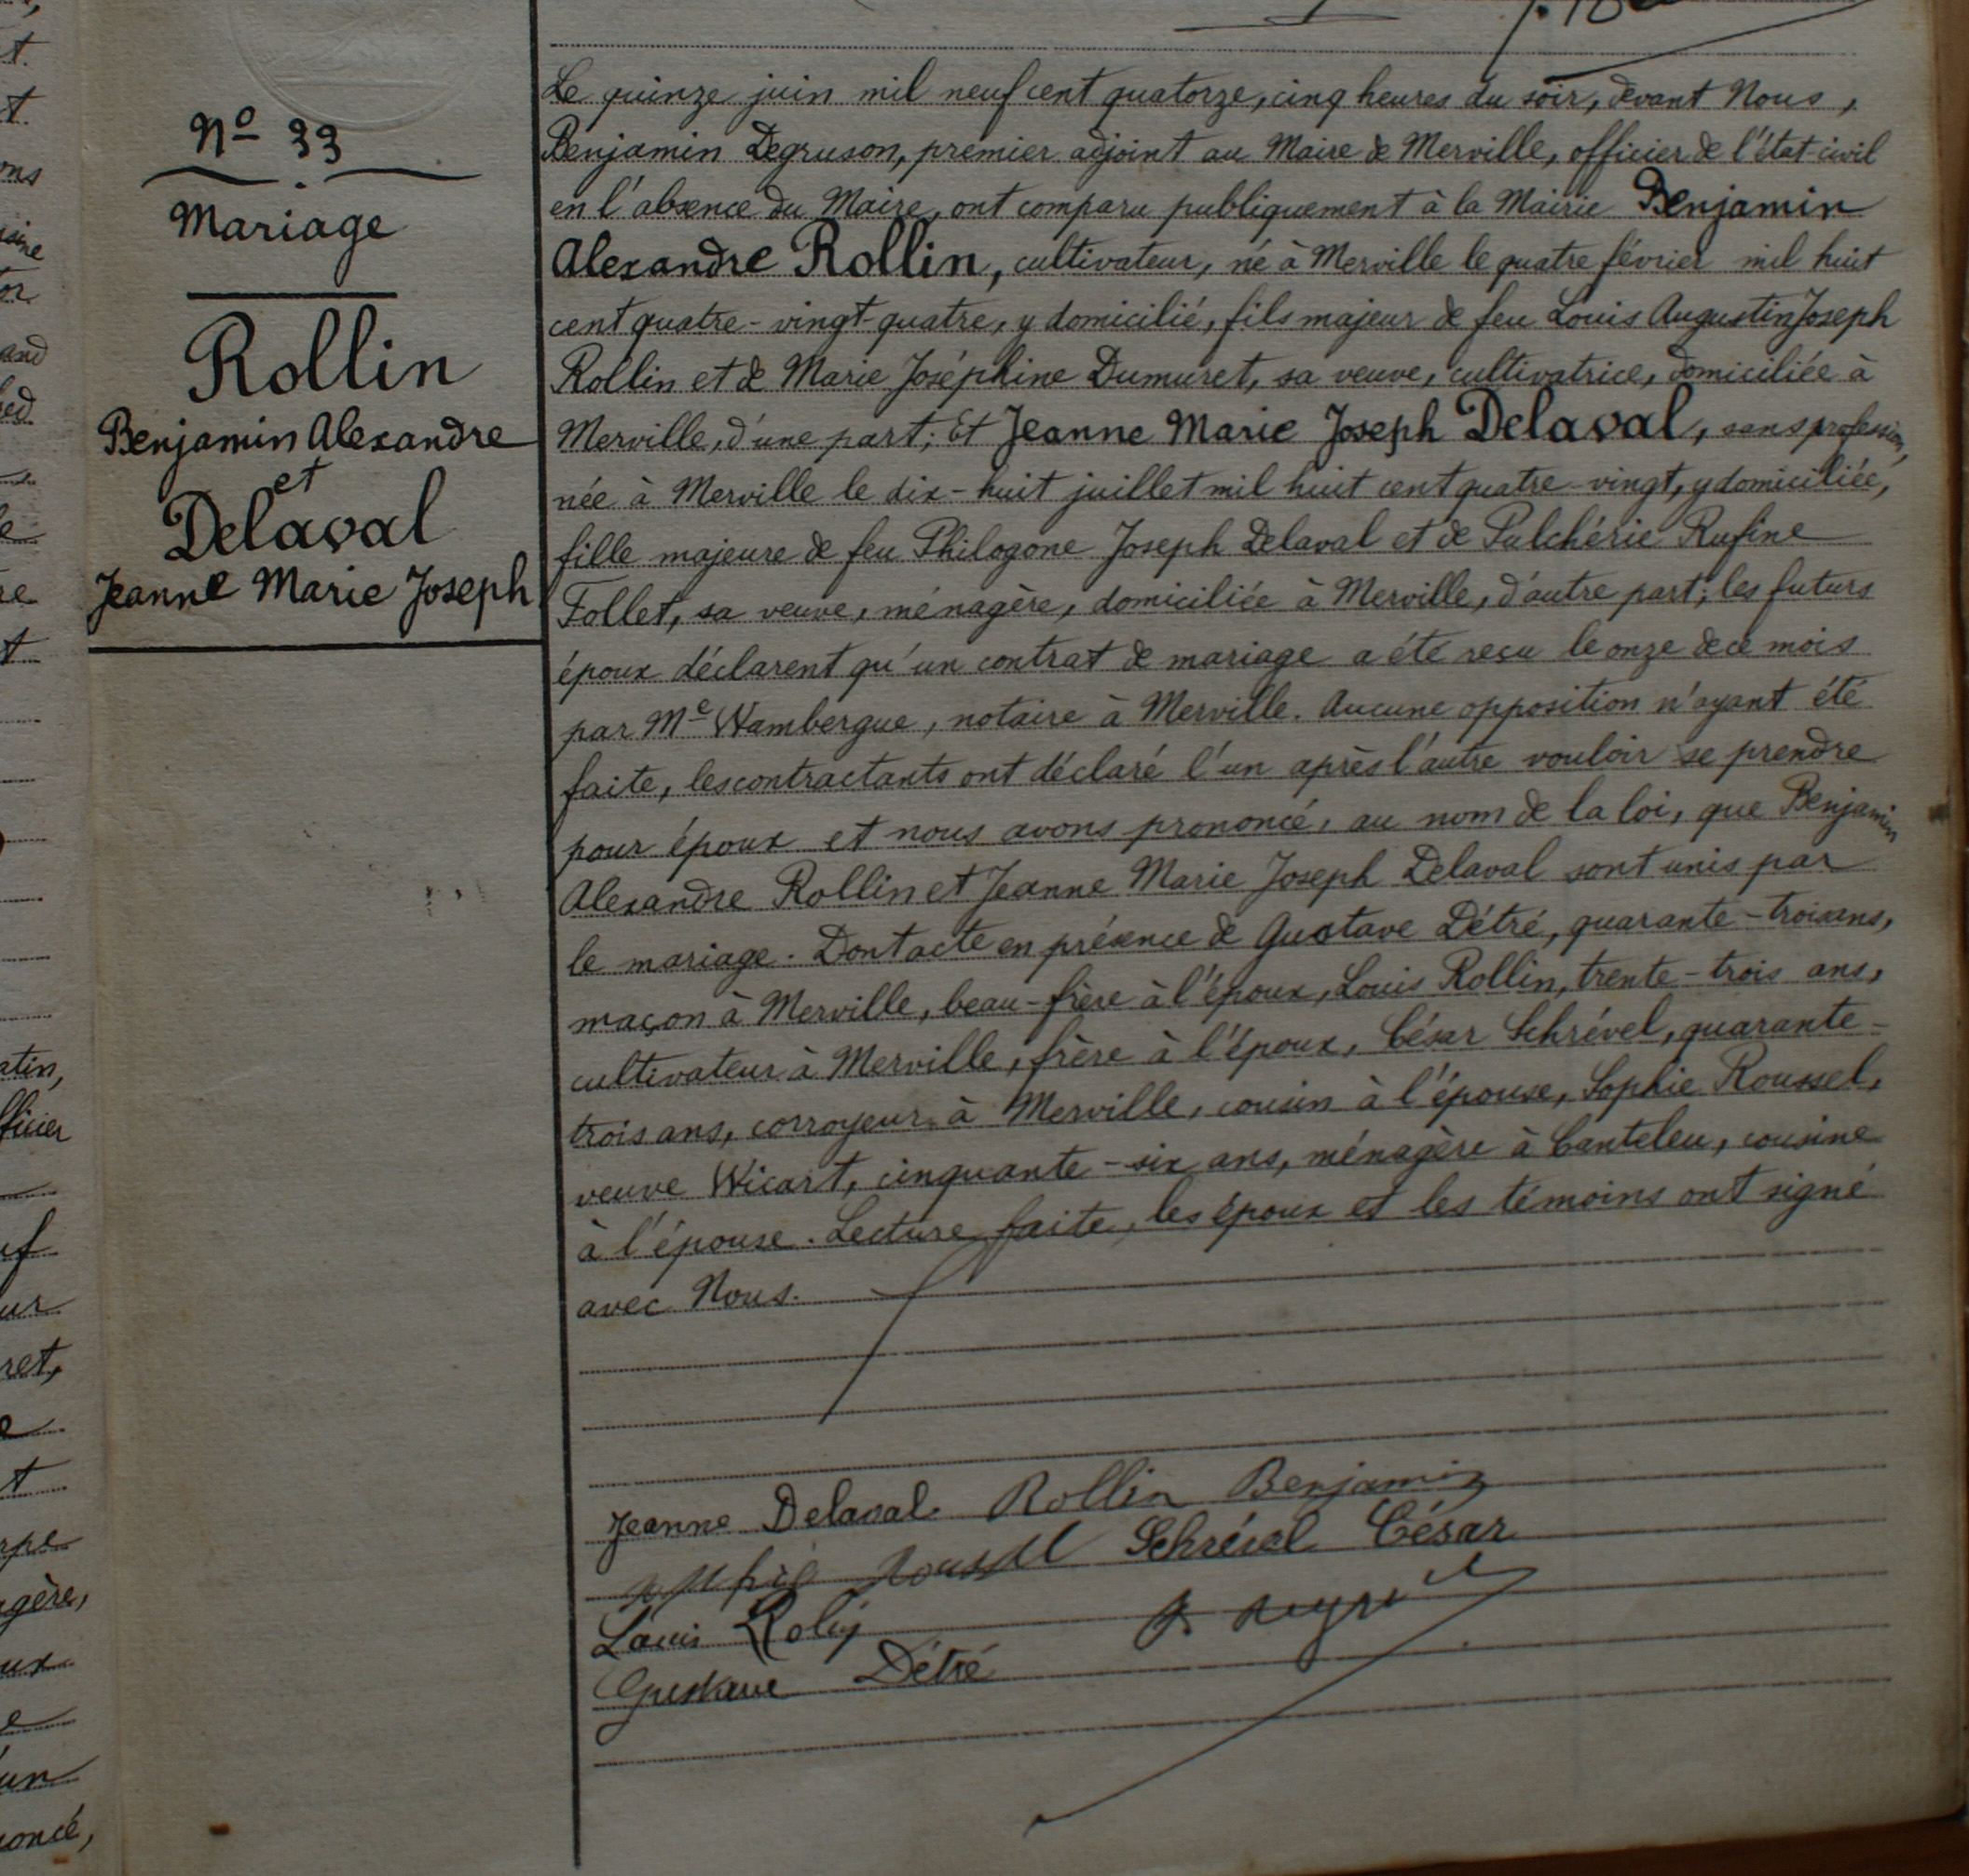 Nº 33
Mariage
Rollin
Benjamin Alexandre
et
Delaval
Jeanne Marie Joseph
Le quinze juin mil neuf cent quatorze, cinq heures du soir, devant Nous,
Benjamin Degruson, premier adjoint au Maire de Merville, officier de l'état civil
en l'absence du Maire, ont comparu publiquement à la Mairie Benjamin
Alexandre Rollin, cultivateur, né à Merville le quatre février mil huit
cent quatre-vingt-quatre, y domicilié, fils majeur de feu Louis Augustin Joseph
Rollin et de Marie Joséphine Dumuret, sa veuve, cultivatrice, domiciliée à
Merville, d'une part; Et Jeanne Marie Joseph Delaval, sans profession,
née à Merville le dix-huit juillet mil huit cent quatre-vingt, y domiciliée,
fille majeure de feu Philogone Joseph Delaval et de Pulchérie Rufine
Follet, sa veuve, ménagère, domiciliée à Merville, d'autre part; les futurs
époux déclarent qu'un contrat de mariage a été reçu le onze de ce mois
par Me Wambergue, notaire à Merville. Aucune opposition n'ayant été
faite, les contractants ont déclaré l'un après l'autre vouloir se prendre
pour époux et nous avons prononcé, au nom de la loi, que Benjamin
Alexandre Rollin et Jeanne Marie Joseph Delaval sont unis par
le mariage. Dont acte en présence de Gustave Détré, quarante-trois ans,
maçon à Merville, beau-frère à l'époux, Louis Rollin, trente-trois ans,
cultivateur à Merville, frère à l'époux, César Schrével, quarante-
trois ans, corroyeur à Merville, cousin à l'épouse, Sophie Roussel,
veuve Wicart, cinquante-six ans, ménagère à Canteleu, cousine
à l'épouse. Lecture faite, les époux et les témoins ont signé
avec Nous.
Jeanne Delaval Rollin Benjamin
Sophie Roussel Schrével César
Louis Rolin
Gustave Détré